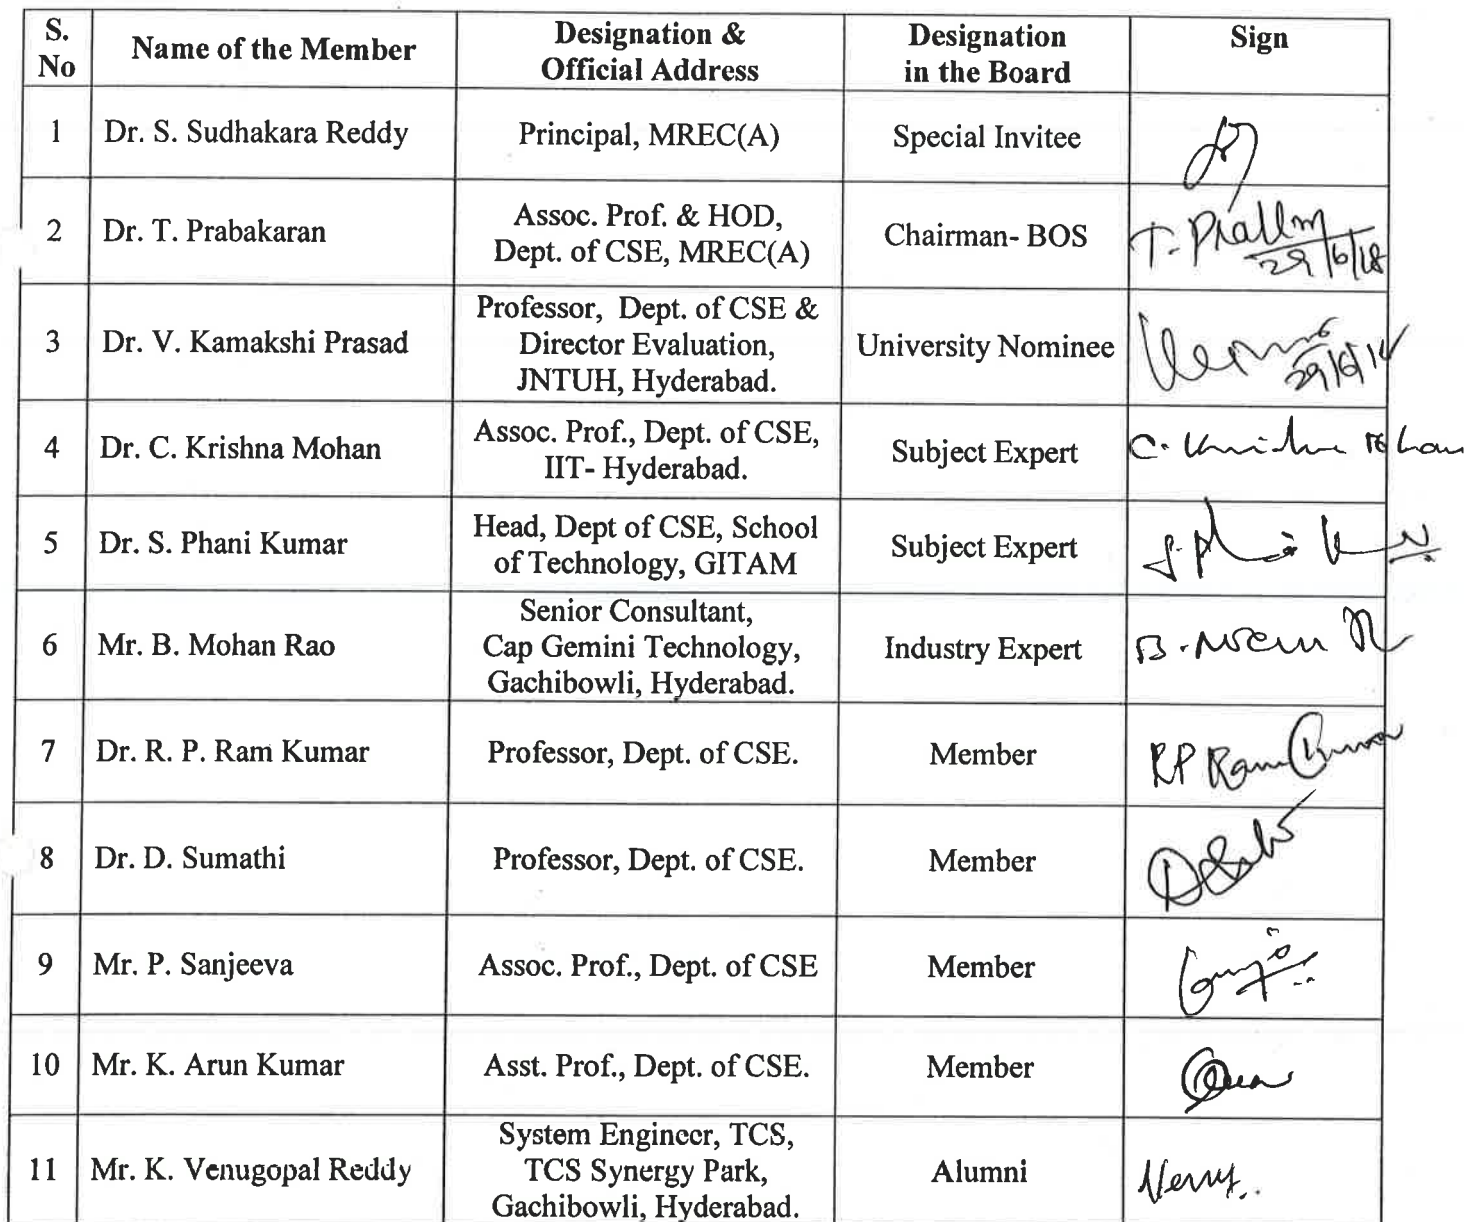 S. No Name of the Member Designation & Official Address Designation in the Board Sign
1 Dr. S. Sudhakara Reddy Principal, MREC(A) Special Invitee
2 Dr. T. Prabakaran Assoc. Prof. & HOD,
Dept. of CSE, MREC(A) Chairman- BOS T.
29/6/18
3 Dr. V. Kamakshi Prasad Professor, Dept. of CSE &
Director Evaluation,
JNTUH, Hyderabad. University Nominee
29/6/18
4 Dr. C. Krishna Mohan Assoc. Prof., Dept. of CSE,
IIT- Hyderabad. Subject Expert C. Krishna Mohan
5 Dr. S. Phani Kumar Head, Dept of CSE, School
of Technology, GITAM Subject Expert
6 Mr. B. Mohan Rao Senior Consultant,
Cap Gemini Technology,
Gachibowli, Hyderabad. Industry Expert B.
7 Dr. R. P. Ram Kumar Professor, Dept. of CSE. Member RP Ram Kumar
8 Dr. D. Sumathi Professor, Dept. of CSE. Member
9 Mr. P. Sanjeeva Assoc. Prof., Dept. of CSE Member
10 Mr. K. Arun Kumar Asst. Prof., Dept. of CSE. Member
11 Mr. K. Venugopal Reddy System Engineer, TCS,
TCS Synergy Park,
Gachibowli, Hyderabad. Alumni